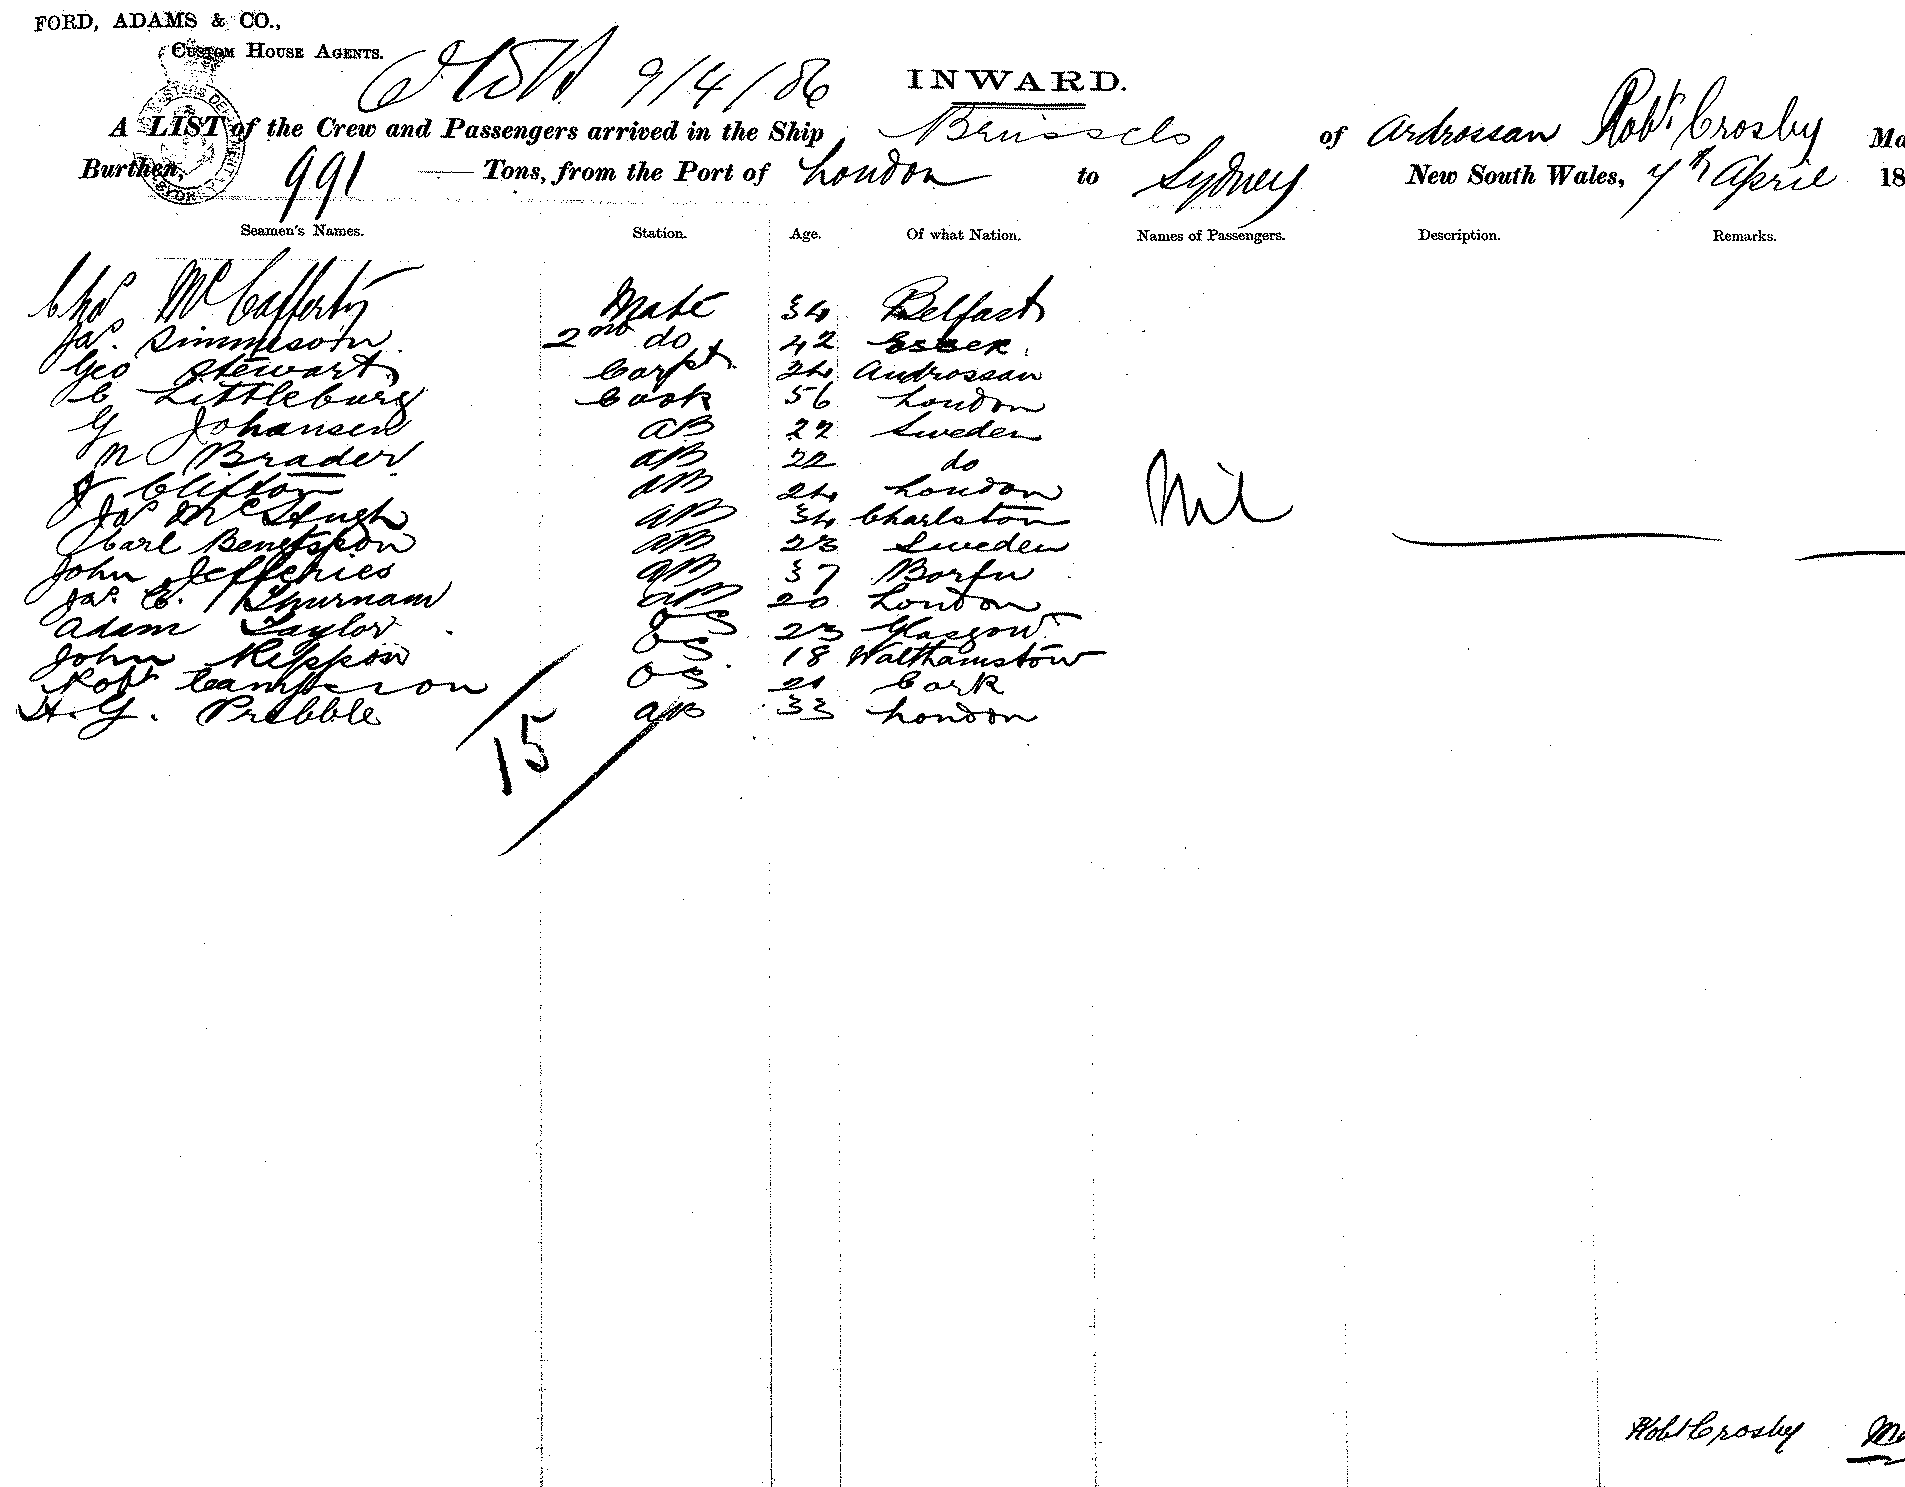 FORD, ADAMS & CO.,
CUSTOM HOUSE AGENTS.
9/4/86
INWARD.
A LIST of the Crew and Passengers arrived in the Ship Brussels of Ardrossan Robt Crosby
Burthen, 991 Tons, from the Port of London to Sydney New South Wales, 7th April 18
Seamen's Names. Station. Age. Of what Nation. Names of Passengers. Description. Remarks.
Chas McCafferty Mate 34 Belfast
Jas. Simmison 2nd do 42 Essex
Geo Stewart Carpt 24 Androssan
C Littlebury Cook 56 London
G Johansen AB 22 Sweden
N Brader AB 22 do
J Clifton AB 24 London
Nil
Jas McHugh AB 34 Charlston
Carl Bengtsson AB 23 Sweden
John Jefferies AB 37
Jas. E. Thurnam AB 20 London
Adam Taylor OS 23 Glasgow
John Kippon OS 18 Walthamstow
Robt OS 21 Cork
H. G. Prebble AB 33 London
15
Robt Crosby